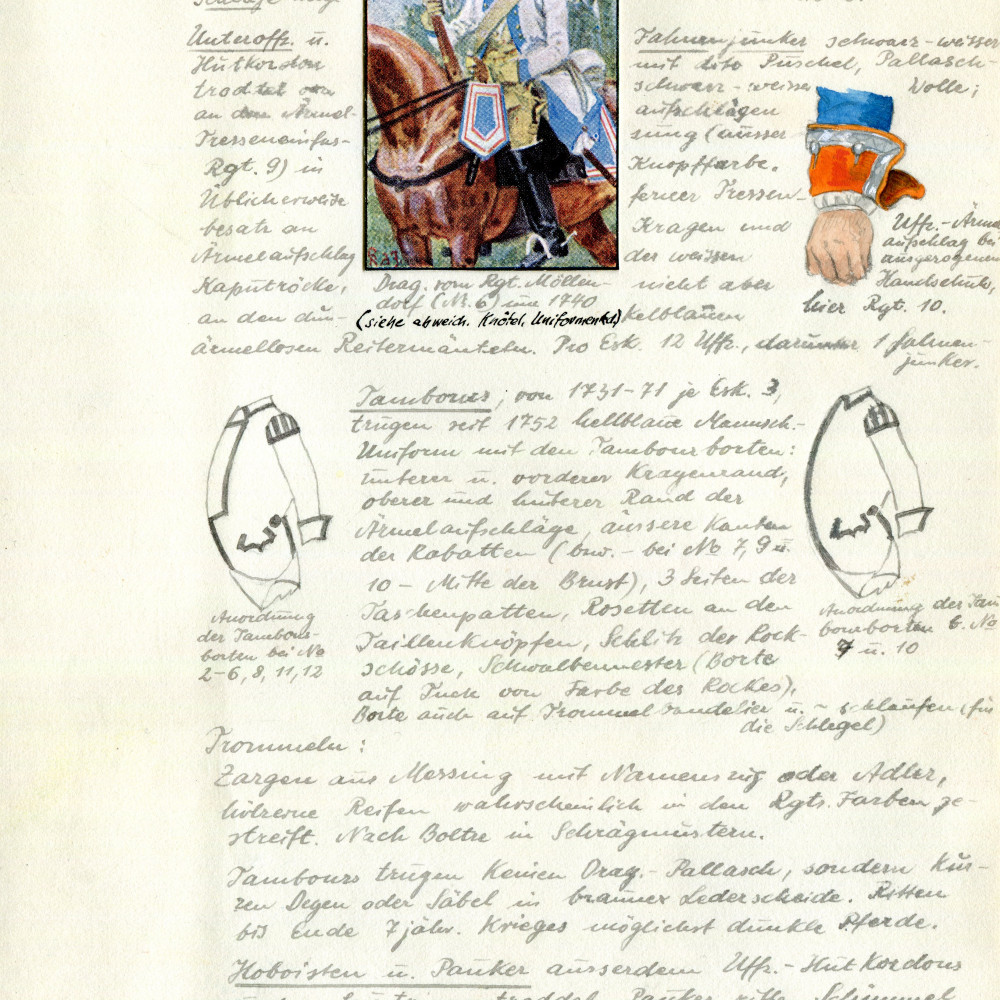 Unteroffz. u. Fahnenjunker schwarz-weisser
Hutkordon mit dito Püschel, Pallasch-
troddel schwarz-weisse Wolle;
an Ärmel- aufschlägen
Tresseneinfas- sung (ausser
Rgt. 9) in Knopffarbe.
Üblicherweise ferner Tressen-
besatz an Kragen und
Ärmelaufschlag der weissen
Kaputröcke, nicht aber
an den dun- kelblauen
ärmellosen Reitermänteln. Pro Esk. 12 Uffz., darunter 1 Fahnen-
junker.
Drag. vom Rgt. Möllen-
dorf (No. 6) um 1740
(siehe abweich. Knötel, Uniformenkd.)
Uffz.-Ärmel
aufschlag bei
ausgezogenem
Handschuh,
hier Rgt. 10.
Tambours, von 1731-71 je Esk. 3,
trugen seit 1752 hellblaue Mannsch.-
Uniform mit den Tambourborten:
unterer u. vorderer Kragenrand,
oberer und hinterer Rand der
Ärmelaufschläge, äussere Kanten
der Rabatten (bzw. - bei No 7, 9 u.
10 - Mitte der Brust), 3 Seiten der
Taschenpatten, Rosetten an den
Taillenknöpfen, Schlitz der Rock-
schösse, Schwalbennester (Borte
auf Tuch von Farbe des Rockes),
Borte auch auf Trommelbandelier u. - schlaufen (für
die Schlegel)
Anordnung
der Tambour-
borten bei No
2-6, 8, 11, 12
Anordnung der Tam
bourborten b. No
7 u. 10
Trommeln:
Zargen aus Messing mit Namenszug oder Adler,
hölzerne Reifen wahrscheinlich in den Rgts. Farben ge-
streift. Nach Boltze in Schrägmustern.
Tambours trugen keinen Drag.-Pallasch, sondern kur-
zen Degen oder Säbel in brauner Lederscheide. Ritten
bis Ende 7jähr. Krieges möglichst dunkle Pferde.
Hoboisten u. Pauker ausserdem Uffz.-Hutkordons
troddel. Pauker ritten Schimmel